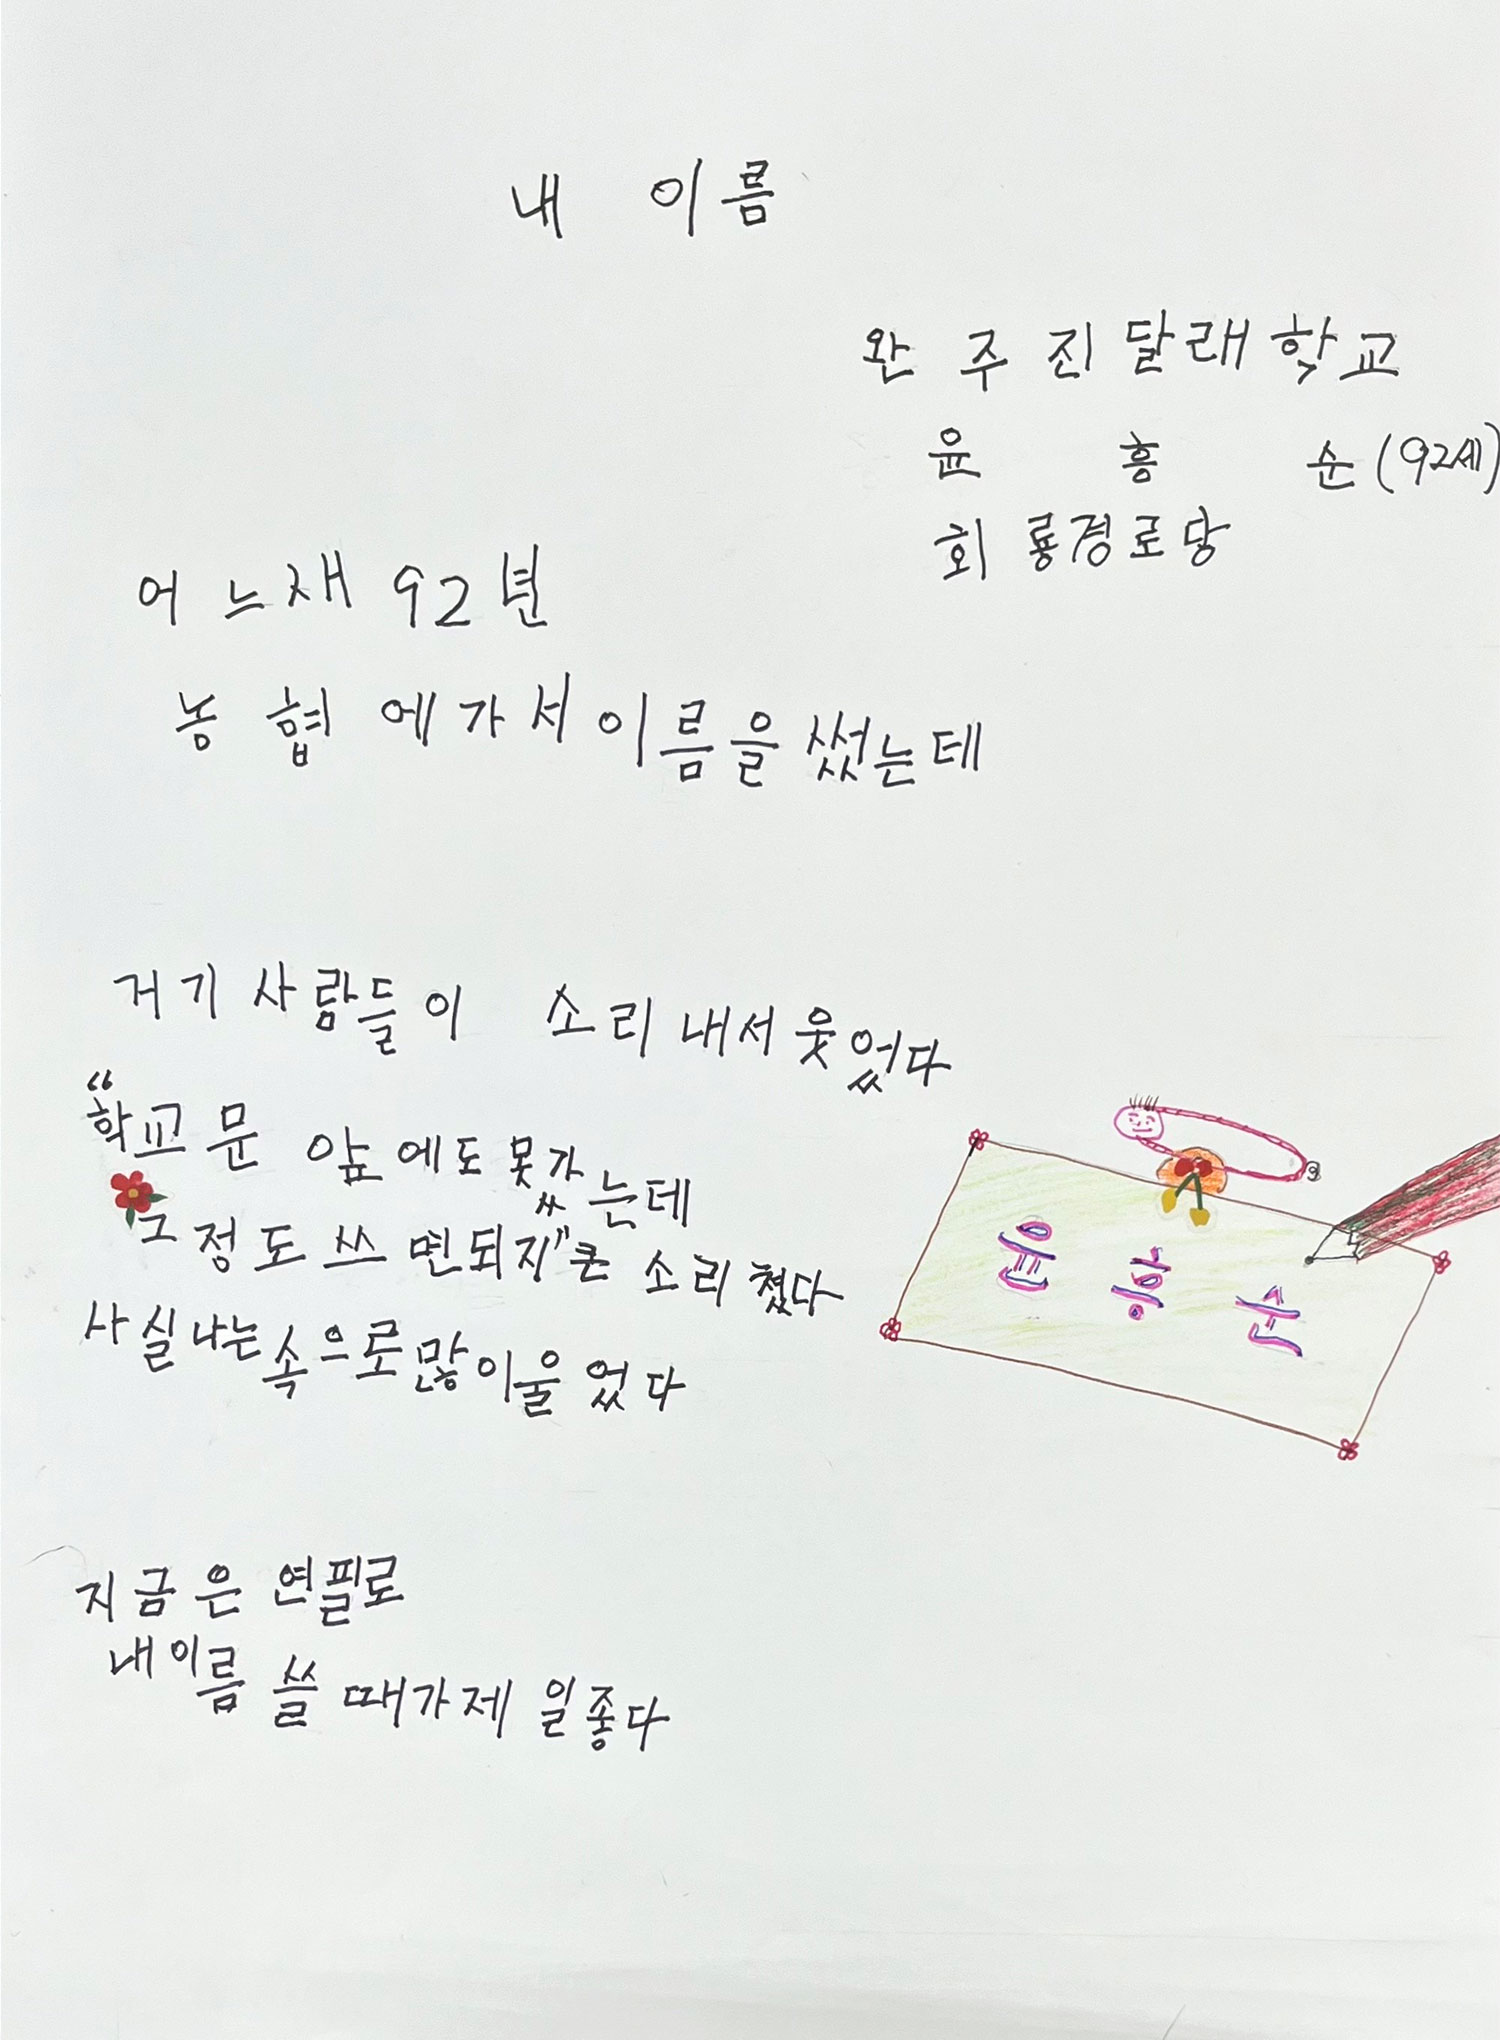 내 이름
완주진달래학교
윤 흥 순 (92세)
회룡경로당
어느새 92년
농협에가서이름을썼는데
거기사람들이 소리내서웃었다
"학교문 앞에도못갔는데
그정도쓰면되지"큰 소리쳤다
사실나는속으로많이울었다
윤 흥 순
지금은 연필로
내이름 쓸 때가제일좋다